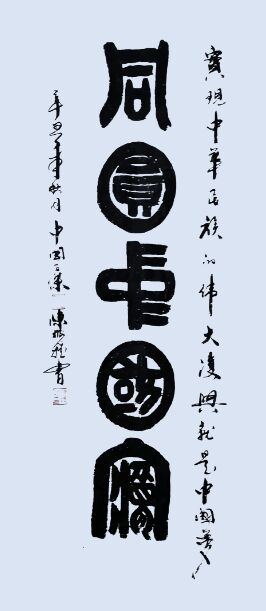 實現中華民族的偉大復興就是中國夢
同圓中國夢
辛丑年秋月中國陳書